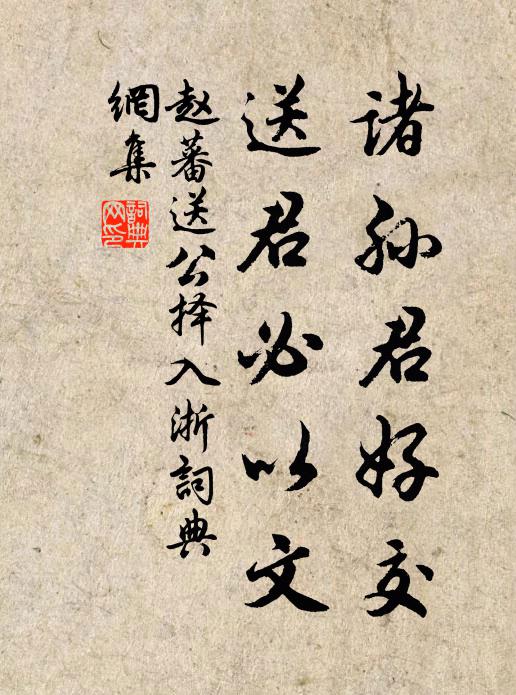 諸孙君好交
送君必以文
赵蕃送公择入浙詞典
網集
詞典网印